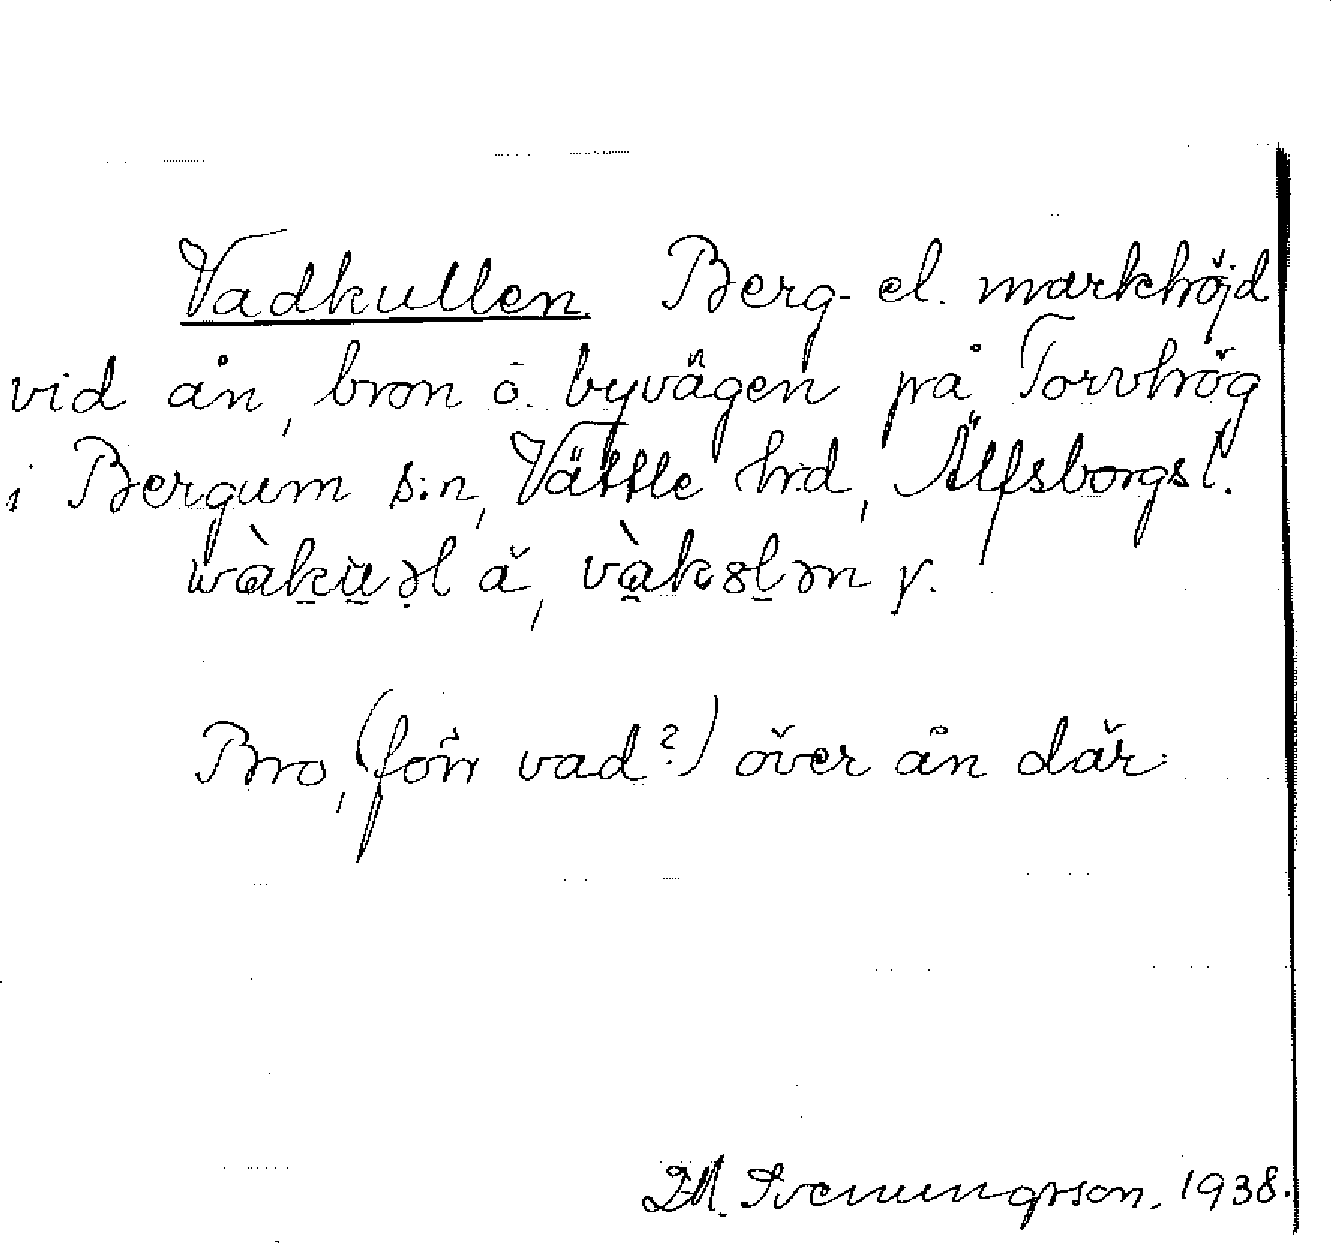 Vadkullen Berg- el. markhöjd
vid ån, bron o. byvägen på Torvhög
i Bergum s:n, Vättle hd, Älfsborgs l.
å, y.
Bro, (förr vad?) över ån där.
Svenungsson. 1938.